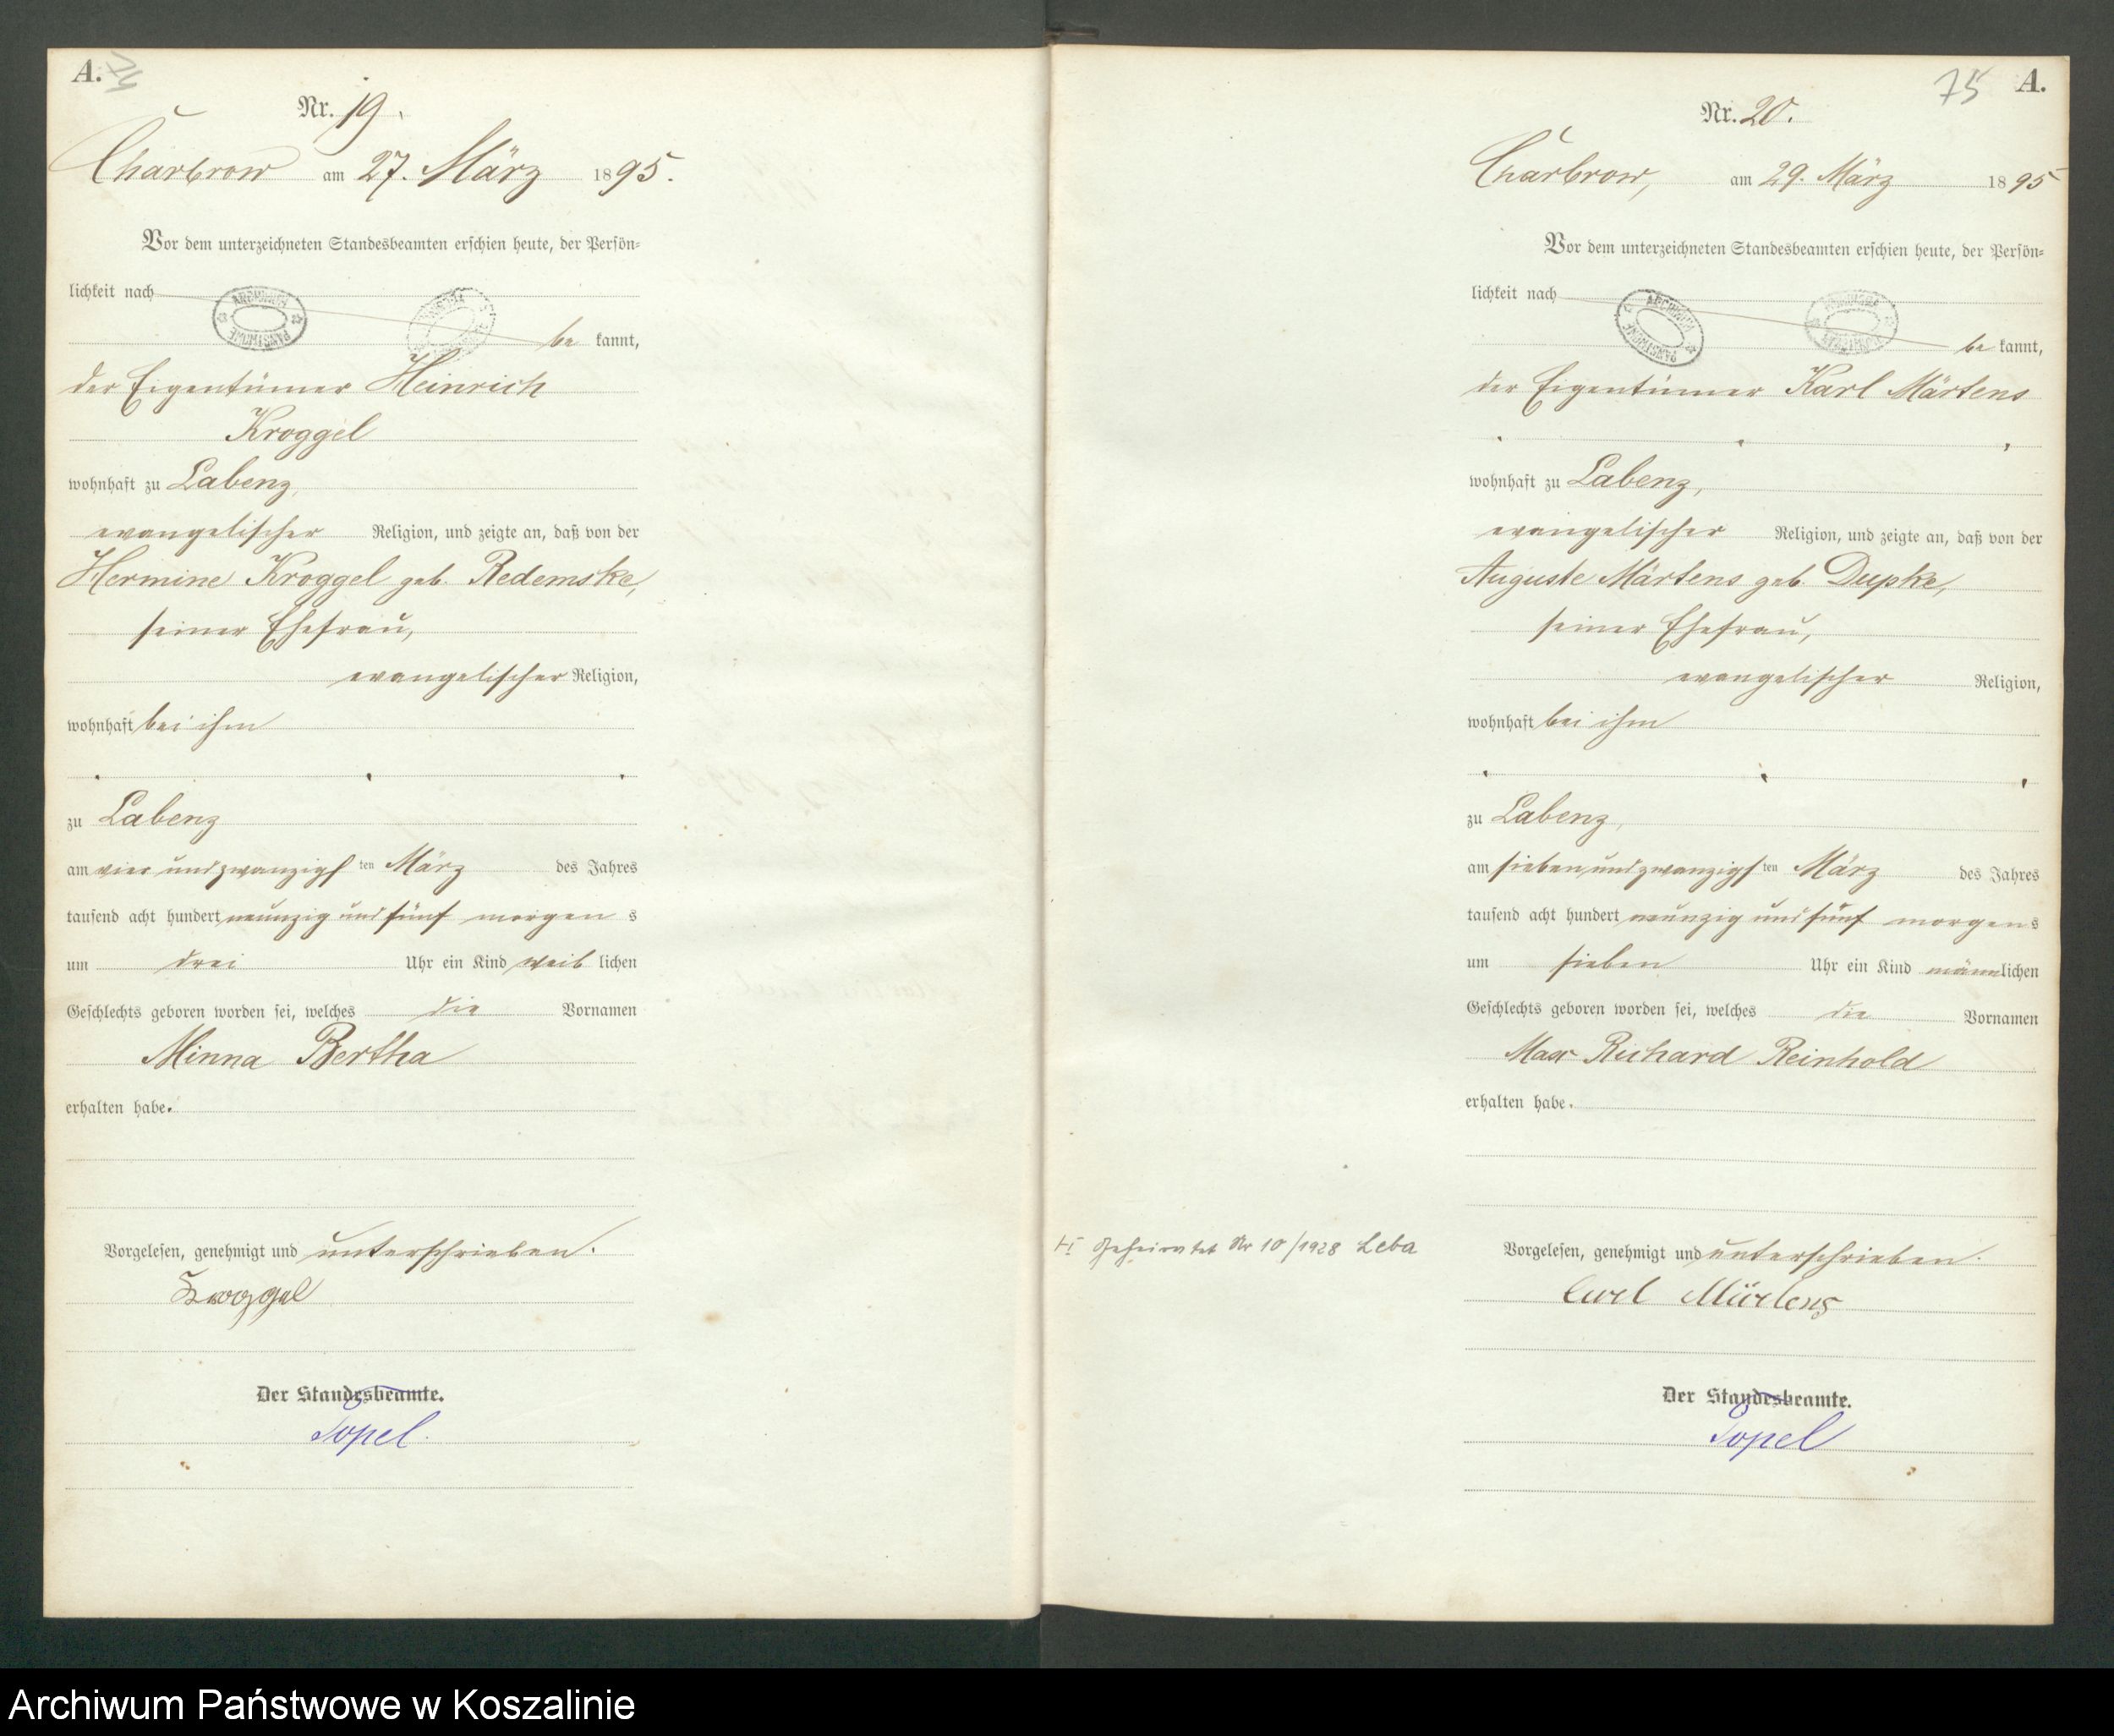 A. 74
Nr. 19.
Charbrow am 27. März 1895.
Vor dem unterzeichneten Standesbeamten erschien heute, der Persön-
lichkeit nach
be kannt,
der Eigentümer Heinrich
Kroggel
wohnhaft zu Labenz,
evangelischer Religion, und zeigte an, daß von der
Hermine Kroggel geb. Redemske,
seiner Ehefrau,
evangelischer Religion,
wohnhaft bei ihm
zu Labenz
am vier und zwanzigsten März des Jahres
tausend acht hundert neunzig und fünf morgens
um drei Uhr ein Kind weiblichen
Geschlechts geboren worden sei, welches die Vornamen
Minna Bertha
erhalten habe.
Vorgelesen, genehmigt und unterschrieben.
Kroggel
Der Standesbeamte.
Topel.
75 A.
Nr. 20.
Charbrow, am 29. März 1895
Vor dem unterzeichneten Standesbeamten erschien heute, der Persön-
lichkeit nach
be kannt,
der Eigentümer Karl Märtens
wohnhaft zu Labenz,
evangelischer Religion, und zeigte an, daß von der
Auguste Märtens geb. Dupke,
seiner Ehefrau,
evangelischer Religion,
wohnhaft bei ihm
zu Labenz,
am sieben und zwanzigsten März des Jahres
tausend acht hundert neunzig und fünf morgens
um sieben Uhr ein Kind männlichen
Geschlechts geboren worden sei, welches die Vornamen
Max Richard Reinhold
erhalten habe.
Geheiratet Nr 10/1928 Leba
Vorgelesen, genehmigt und unterschrieben.
Carl Märtens
Der Standesbeamte.
Topel
ARCHIWUM PAŃSTWOWE
ARCHIWUM PAŃSTWOWE
Archiwum Państwowe w Koszalinie